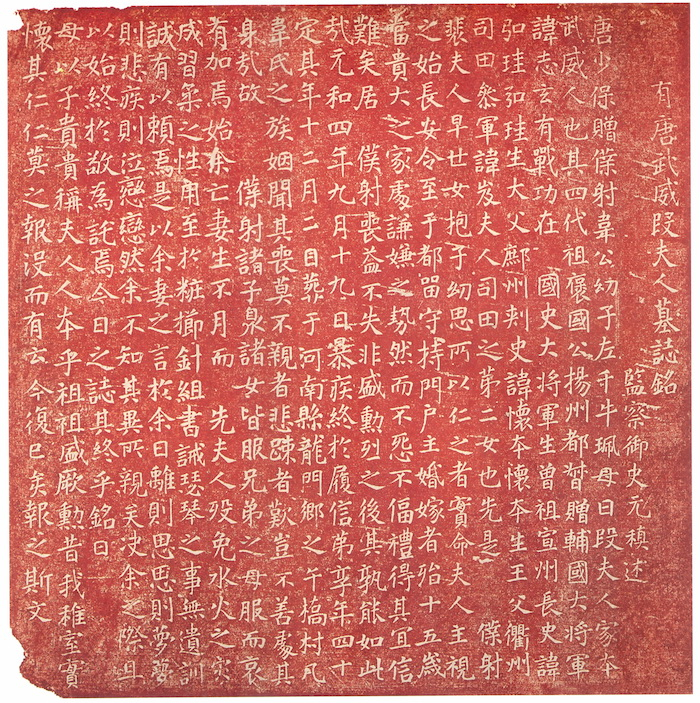 有唐武威段夫人墓誌銘
監察御史元稹述
唐少保贈僕射韋公幼子左千牛珮母曰段夫人家夲
武威人也其四代祖襃國公揚州都督贈輔國大將軍
諱志玄有戰功在 國史大將軍生曾祖宣州長史諱
弘珪弘珪生大父鄜州刾史 諱懷夲懷夲生王父衢州
司田叅軍諱岌夫人司田之第二女也先是 僕射
裴夫人早世女抱子幼思所以仁之者實命夫人主視
之始長安令至于都留守持門戶主婚嫁者殆十五歲
當貴大之家處謙嫌之勢然而不怨不偪禮得其宜信
難矣居 僕射喪益不失非盛勳烈之後其孰能如此
哉元和四年九月十九日暴疾終於履信第享年四十
定其年十二月二日葬于河南縣龍門鄉之午橋村凡
韋氏之族姻聞其喪莫不親者悲踈者歎豈不善處其
身哉故 僕射諸子泉諸女皆服兄弟之母服而哀
有加焉始余亡妻生不月而 先夫人歿免水火之災
成習柔之性用至於粧櫛針組書誡瑟琴之事無遺訓
誠有以賴焉是以余妻之言於余曰離則思思則夢夢
則悲疾則泣戀戀然余不知其異所親矣洎余之際且
以始終於敬焉託焉今日之誌其終乎銘曰
母以子貴貴稱夫人人夲乎祖祖盛厥勳昔我稚室實
懷其仁仁莫之報沒而有云今復已矣報之斯文